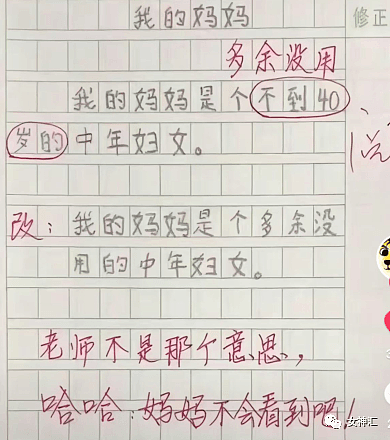 我的妈妈
修正
多余没用
我的妈妈是个不到40
岁的中年妇女。
改：我的妈妈是个多余没
用的中年妇女。
老师不是那个意思，
哈哈：妈妈不会看到吧！
女神汇